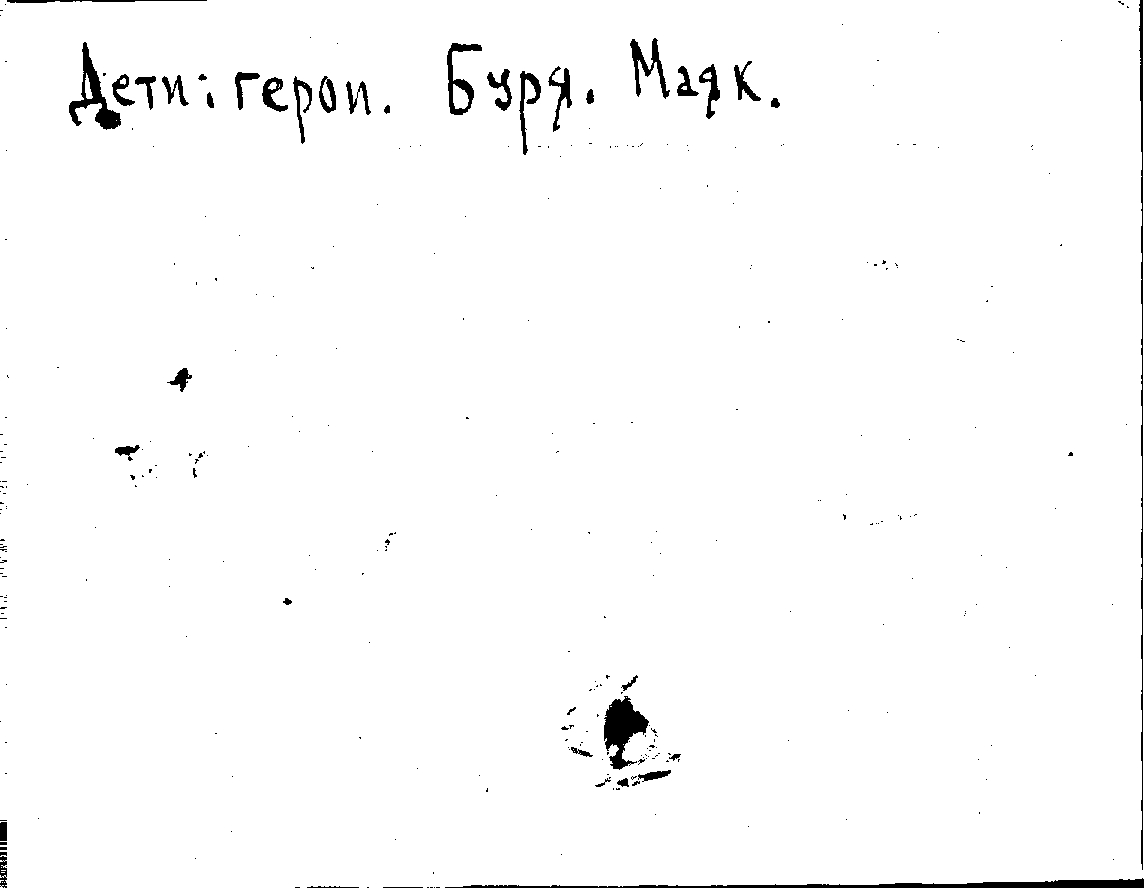 Дети: герои. Буря. Маяк.